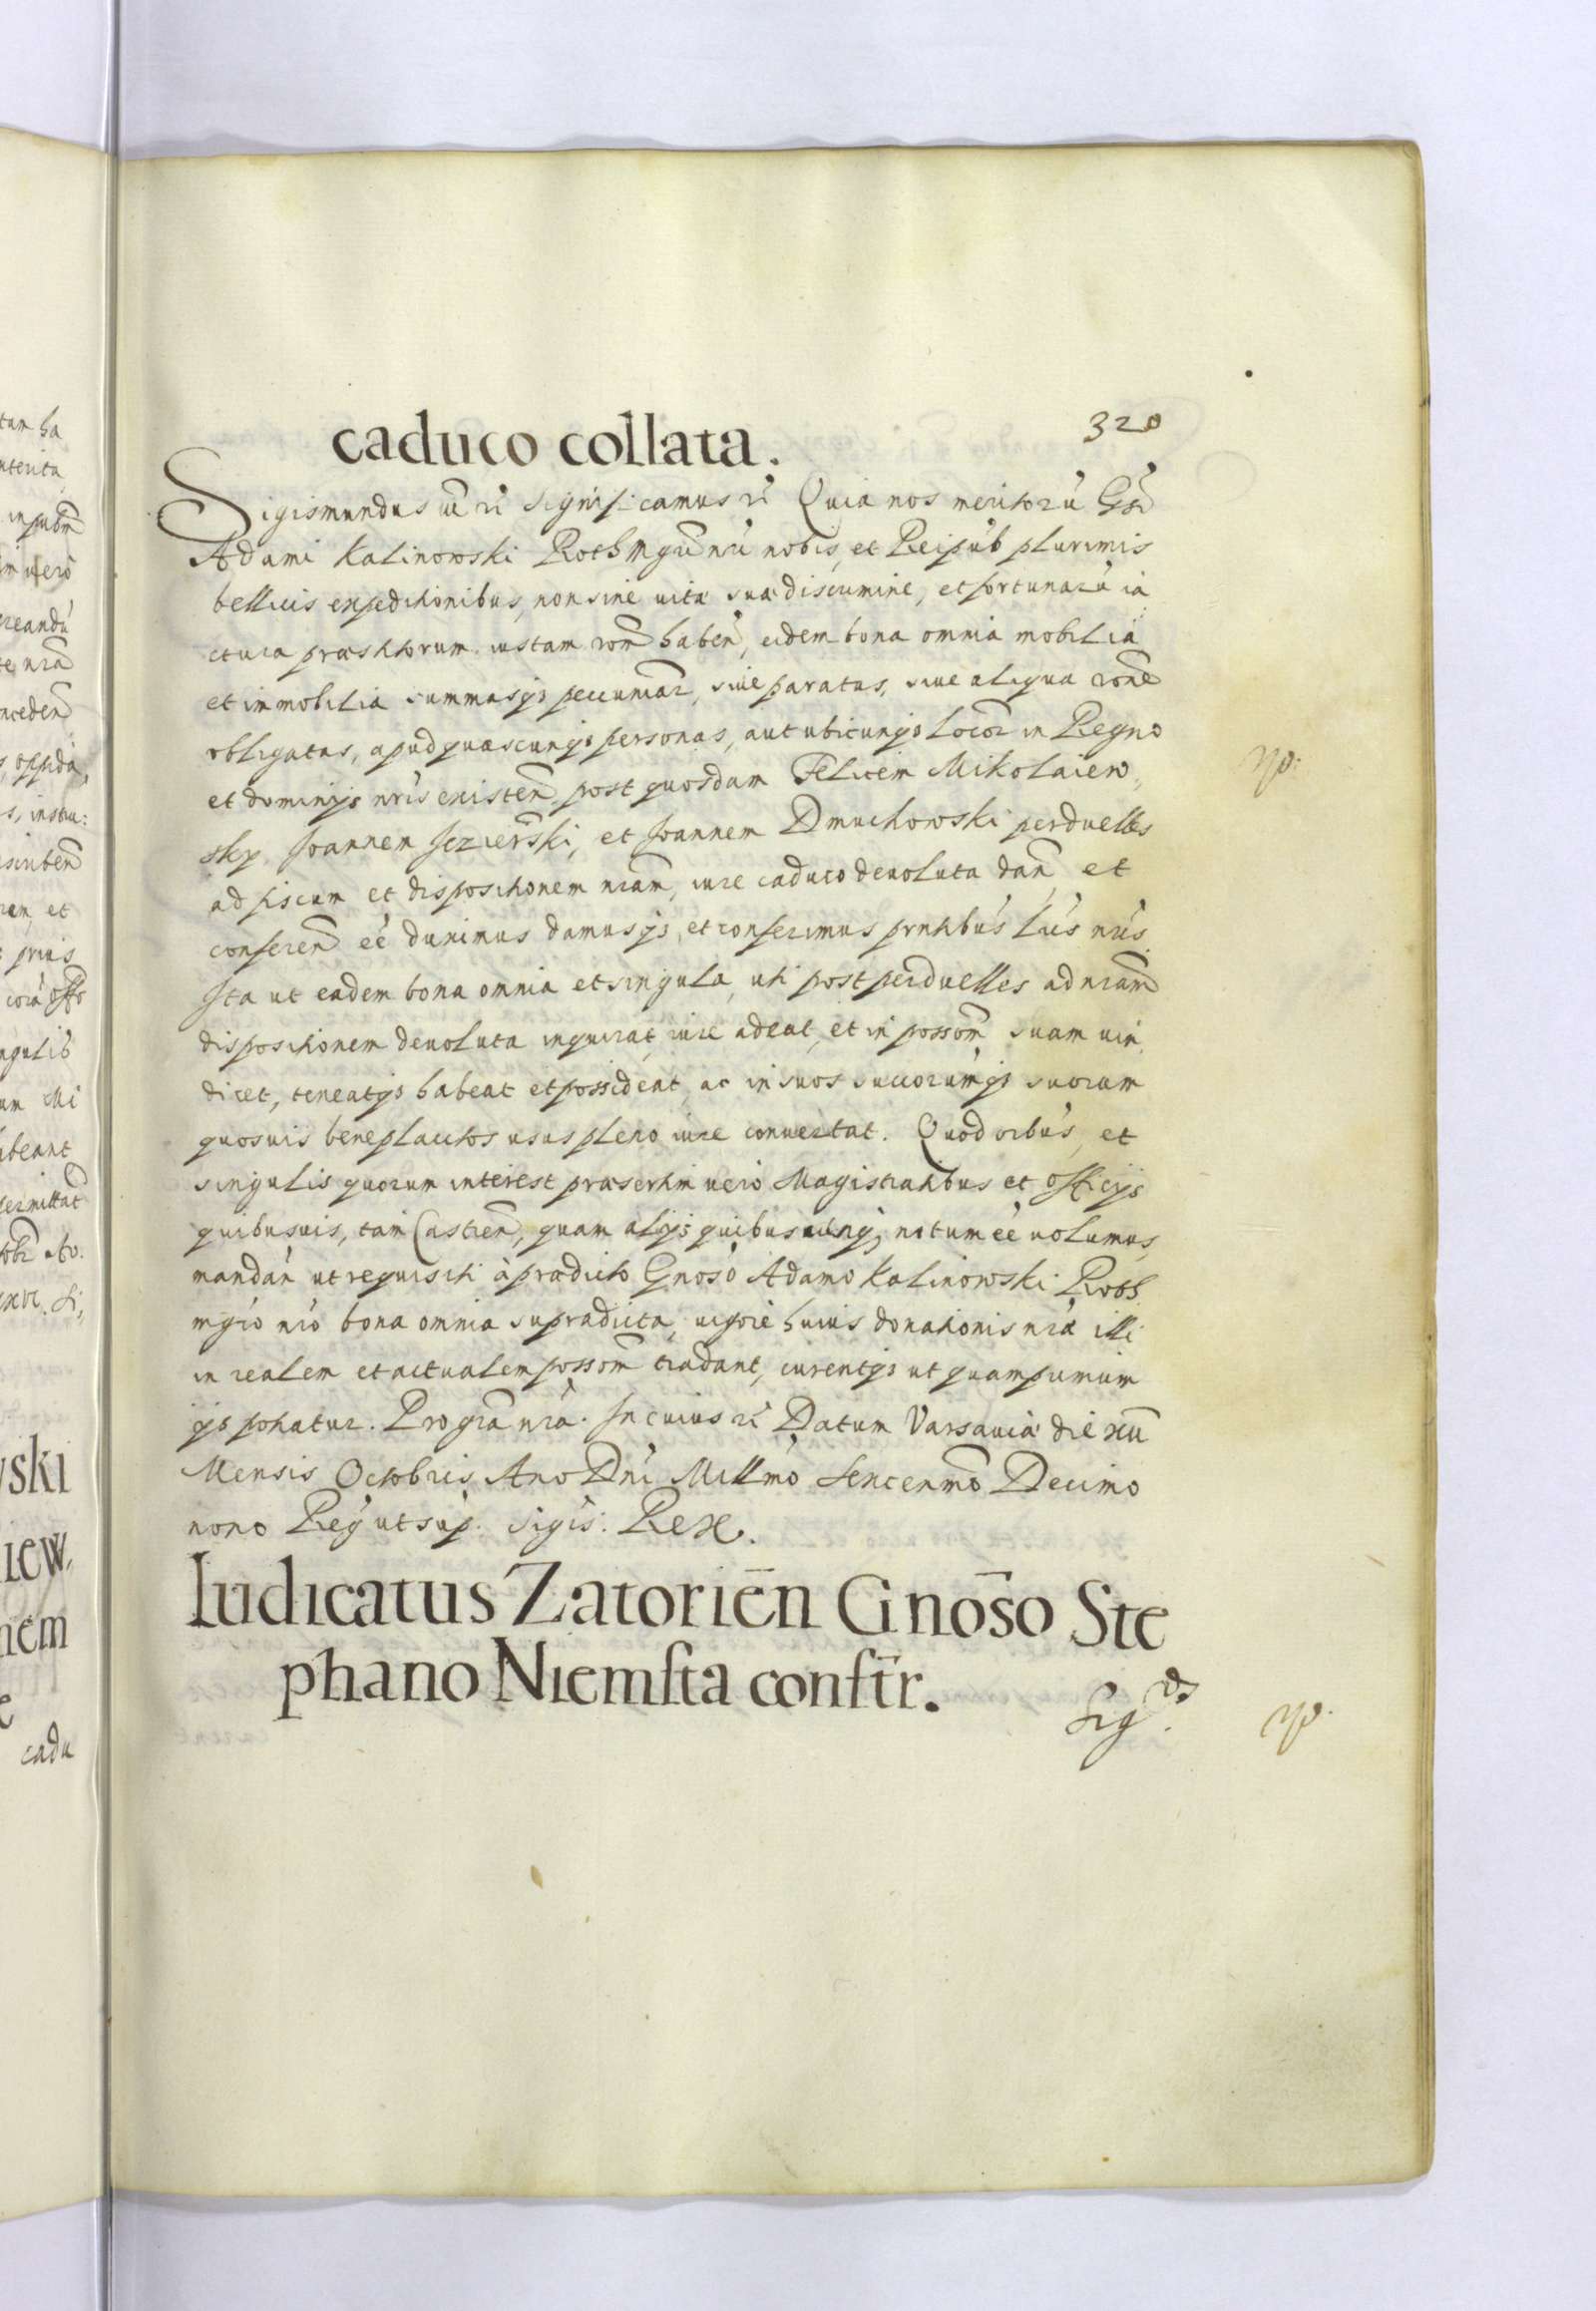 320
caduco collata.
Sigismundus iii ri significamus ri Quia nos meritorũ Gsi
Adami Kalinowski Rothmgri nri nobis, et Reipub plurimis
bellicis expeditionibus, non sine vitæ suæ discrimine, et fortunarũ ia
ctura præstitorum iustam rom̃ haben̄, eidem bona omnia mobilia
et immobilia summasq3 pecuniar, siue paratas, siue aliqua rone
obligatas, apud quascunq3 personas, aut ubicunq3 locor in Regno
et dominijs nris existen̄ post quosdam Felicem Mikolaiew,
sky Joannem Jezierski, et Joannem Dmuchowski perduelles
ad fiscum et dispositionem nram̄, iure caduco deuoluta dan̄ et
conferen̄ eē duximus damusq3, et conferimus pnntibus lris nris
Ita ut eadem bona omnia et singula, uti post perduelles ad nram̄
dispositionem deuoluta inquirat, iure adeat, et in possom̄ suam uin
dicet, teneatq3 habeat et possideat, ac in suos succorumq3 suorum
quosuis beneplacitos usus pleno iure conuertat. Quod oibus, et
singulis quorum interest præsertim uero Magistratibus et officijs
quibusuis, tam Castren̄, quam alijs quibuscunq3, notum eē uolumus,
mandan̄ ut requisiti à prædicto Gnoso Adamo Kalinowski Roth
mgro nro bona omnia supradicta, uigore huius donationis nræ illi
in realem et actualem possom̄ tradant, curentq3 ut quamprimum
ijs potiatur. Pro gra nra. In cuius ri Datum Varsauiæ die xii
Mensis Octobris Ano Dni Millmo Sexcenmo Decimo
nono Reg ut sup. Sigis: Rex.
Iudicatus Zatorien̄ Gnoso Ste
phano Niemsta confr̄.
Sig.ds